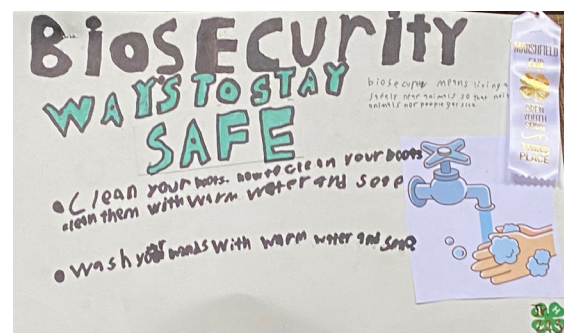 BiOSECURity
WAYS TO STAY
SAFE
biosecurity means living
safely near animals so that
animals nor people get sick
MARSHFIELD
FAIR
OPEN
YOUTH
PLACE
• Clean your boots. how to clean your boots
clean them with warm water and sope
• Wash your hands with warm water and sope